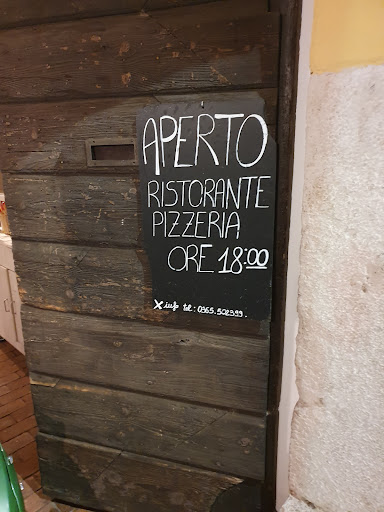 APERTO
RISTORANTE
PIZZERIA
ORE 18:00
X info tel: 0365.502399.